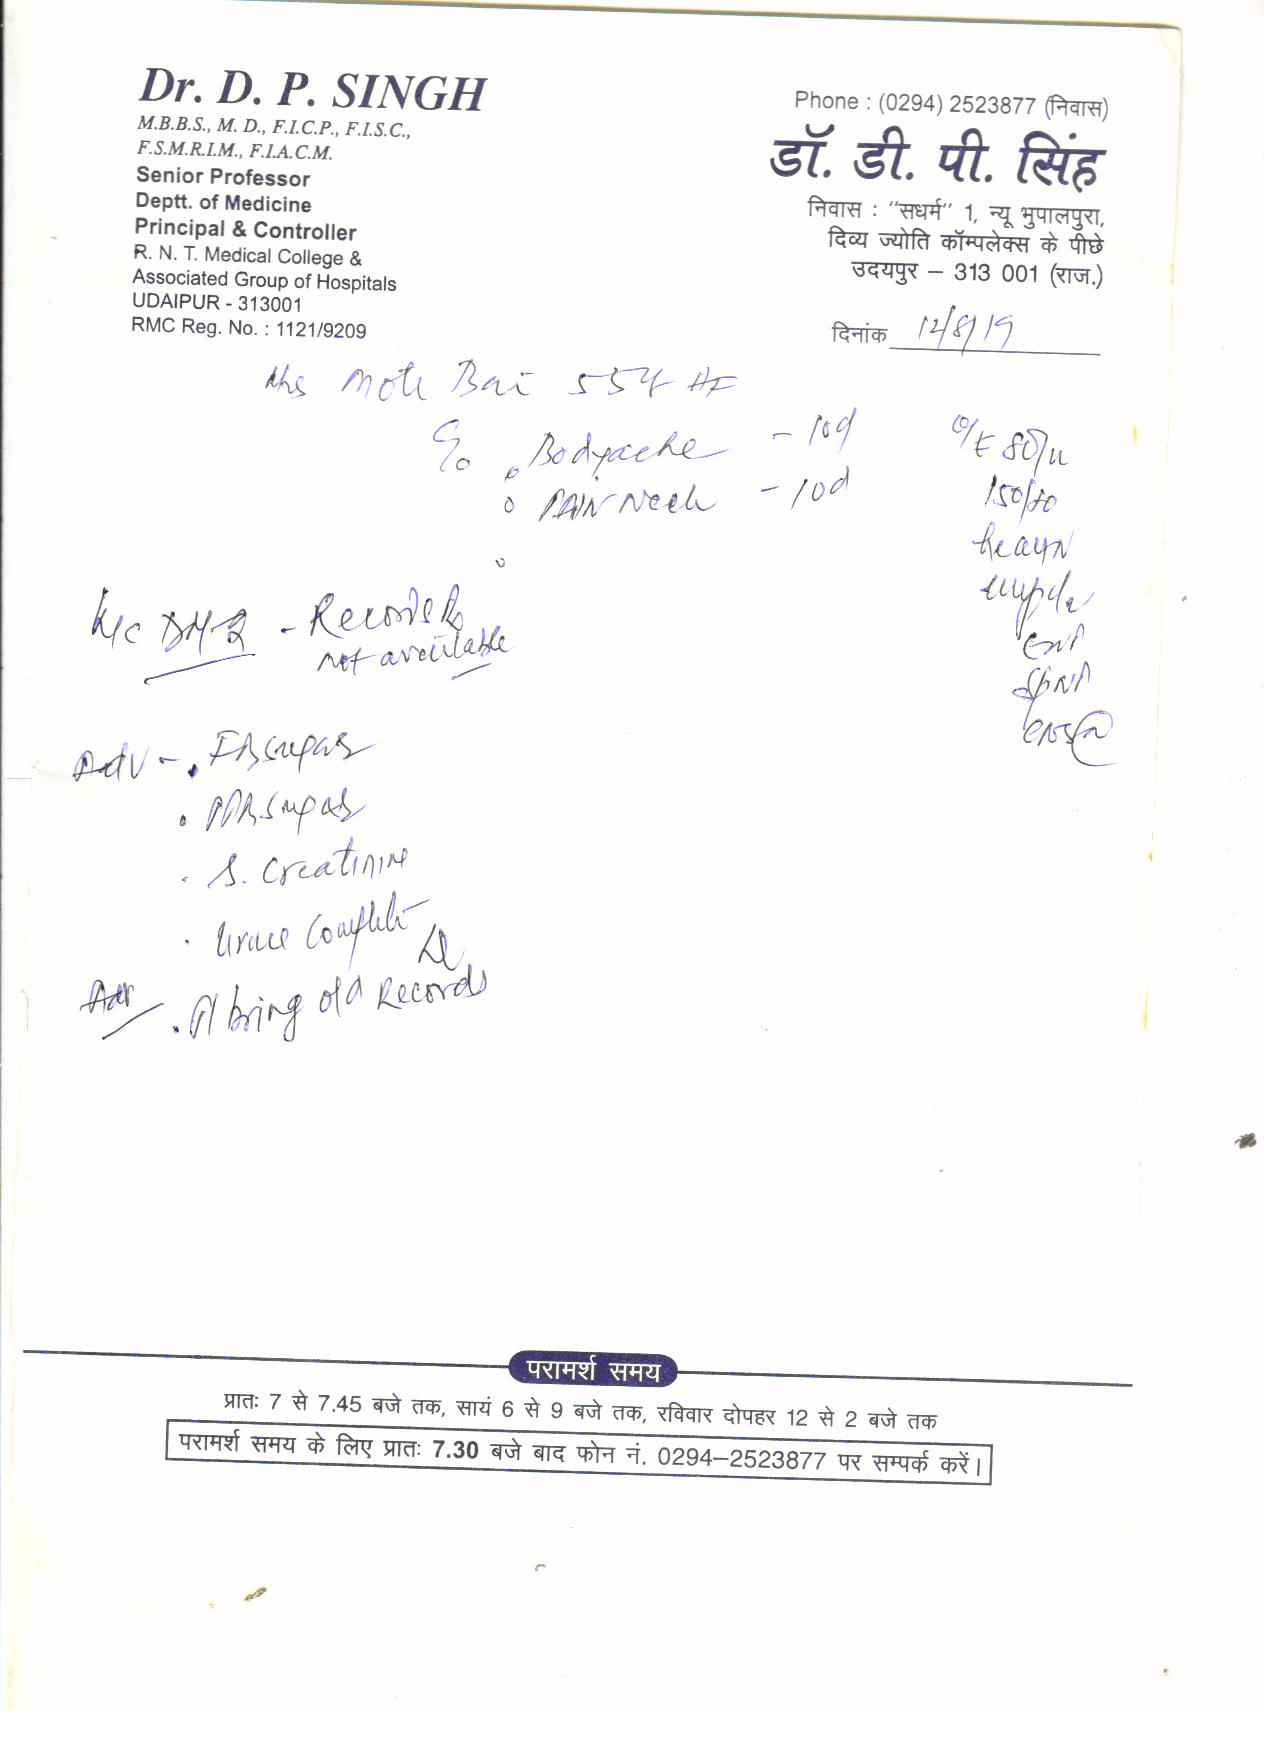 Dr. D. P. SINGH
M.B.B.S., M. D., F.I.C.P., F.I.S.C.,
F.S.M.R.I.M., F.I.A.C.M.
Senior Professor
Deptt. of Medicine
Principal & Controller
R. N. T. Medical College &
Associated Group of Hospitals
UDAIPUR - 313001
RMC Reg. No. : 1121/9209
Phone : (0294) 2523877 (निवास)
डॉ. डी. पी. सिंह
निवास : "सधर्म" 1, न्यू भुपालपुरा,
दिव्य ज्योति कॉम्पलेक्स के पीछे
उदयपुर – 313 001 (राज.)
दिनांक 12/8/19
Mrs Moti Bai 55Y HF
C/o . Bodyache - 10d
PAIN Neck - 10d
O/E 80/m
150/70
K/C DM-2 - Records
not available
Adv - . FBSugar
. PPBSugar
. S. Creatinine
. Urine Complete
Adv . Pl bring old Records
परामर्श समय
प्रातः 7 से 7.45 बजे तक, सायं 6 से 9 बजे तक, रविवार दोपहर 12 से 2 बजे तक
परामर्श समय के लिए प्रातः 7.30 बजे बाद फोन नं. 0294–2523877 पर सम्पर्क करें।